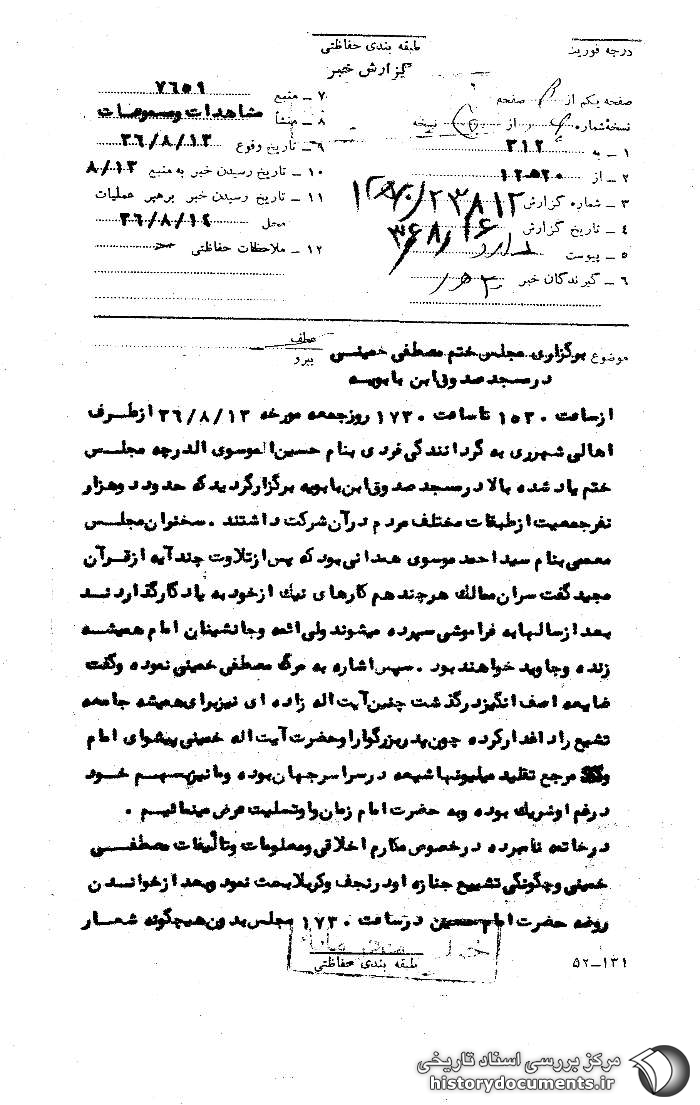 درجه فوریت
طبقه بندی حفاظتی
گزارش خبر
صفحه یکم از صفحه
نسخه شماره از نسخه
۱ – به ۳۱۲
۲ – از ۲۰ ه‍ ۱۲
۳ – شماره گزارش
۴ – تاریخ گزارش
۵ – پیوست ندارد
۶ – گیرندگان خبر
۷ – منبع ۷۶۵۹
۸ – منشأ مشاهدات و مسموعات
۹ – تاریخ وقوع ۳۶/۸/۱۳
۱۰ – تاریخ رسیدن خبر به منبع ۸/۱۳
۱۱ – تاریخ رسیدن خبر برهبر عملیات
محل ۳۶/۸/۱۴
۱۲ – ملاحظات حفاظتی
موضوع برگزاری مجلس ختم مصطفی خمینی
عطف
پیرو
در مسجد صدوق ابن بابویه
از ساعت ۱۵۳۰ تا ساعت ۱۷۳۰ روز جمعه مورخه ۳۶/۸/۱۳ از طرف
اهالی شهرری به گردانندگی فردی بنام حسین الموسوی الدرچه مجلس
ختم یاد شده بالا در مسجد صدوق ابن بابویه برگزار گردید که حدود دو هزار
نفر جمعیت از طبقات مختلف مردم در آن شرکت داشتند . سخنران مجلس
معممی بنام سید احمد موسوی همدانی بود که پس از تلاوت چند آیه از قرآن
مجید گفت سران ممالک هر چند هم کارهای نیک از خود به یادگار گذارند
بعد از سالها به فراموشی سپرده میشوند ولی ائمه و جانشینان امام همیشه
زنده و جاوید خواهند بود . سپس اشاره به مرگ مصطفی خمینی نموده و گفت
ضایعه اسف انگیز درگذشت چنین آیت اله زاده ای نیز برای همیشه جامعه
تشیع را داغدار کرده چون پدر بزرگوار او حضرت آیت اله خمینی پیشوای امام
و مرجع تقلید میلیونها شیعه در سراسر جهان بوده و ما نیز بسهم خود
در غم او شریک بوده و به حضرت امام زمان و او تسلیت عرض مینمائیم .
در خاتمه نامبرده در خصوص مکارم اخلاقی و معلومات و تألیفات مصطفی
خمینی و چگونگی تشییع جنازه او در نجف و کربلا بحث نمود و بعد از خواندن
روضه حضرت امام حسین در ساعت ۱۷۳۰ مجلس بدون هیچگونه شعار
طبقه بندی حفاظتی
۵۲–۱۳۱
مرکز بررسی اسناد تاریخی
historydocuments.ir